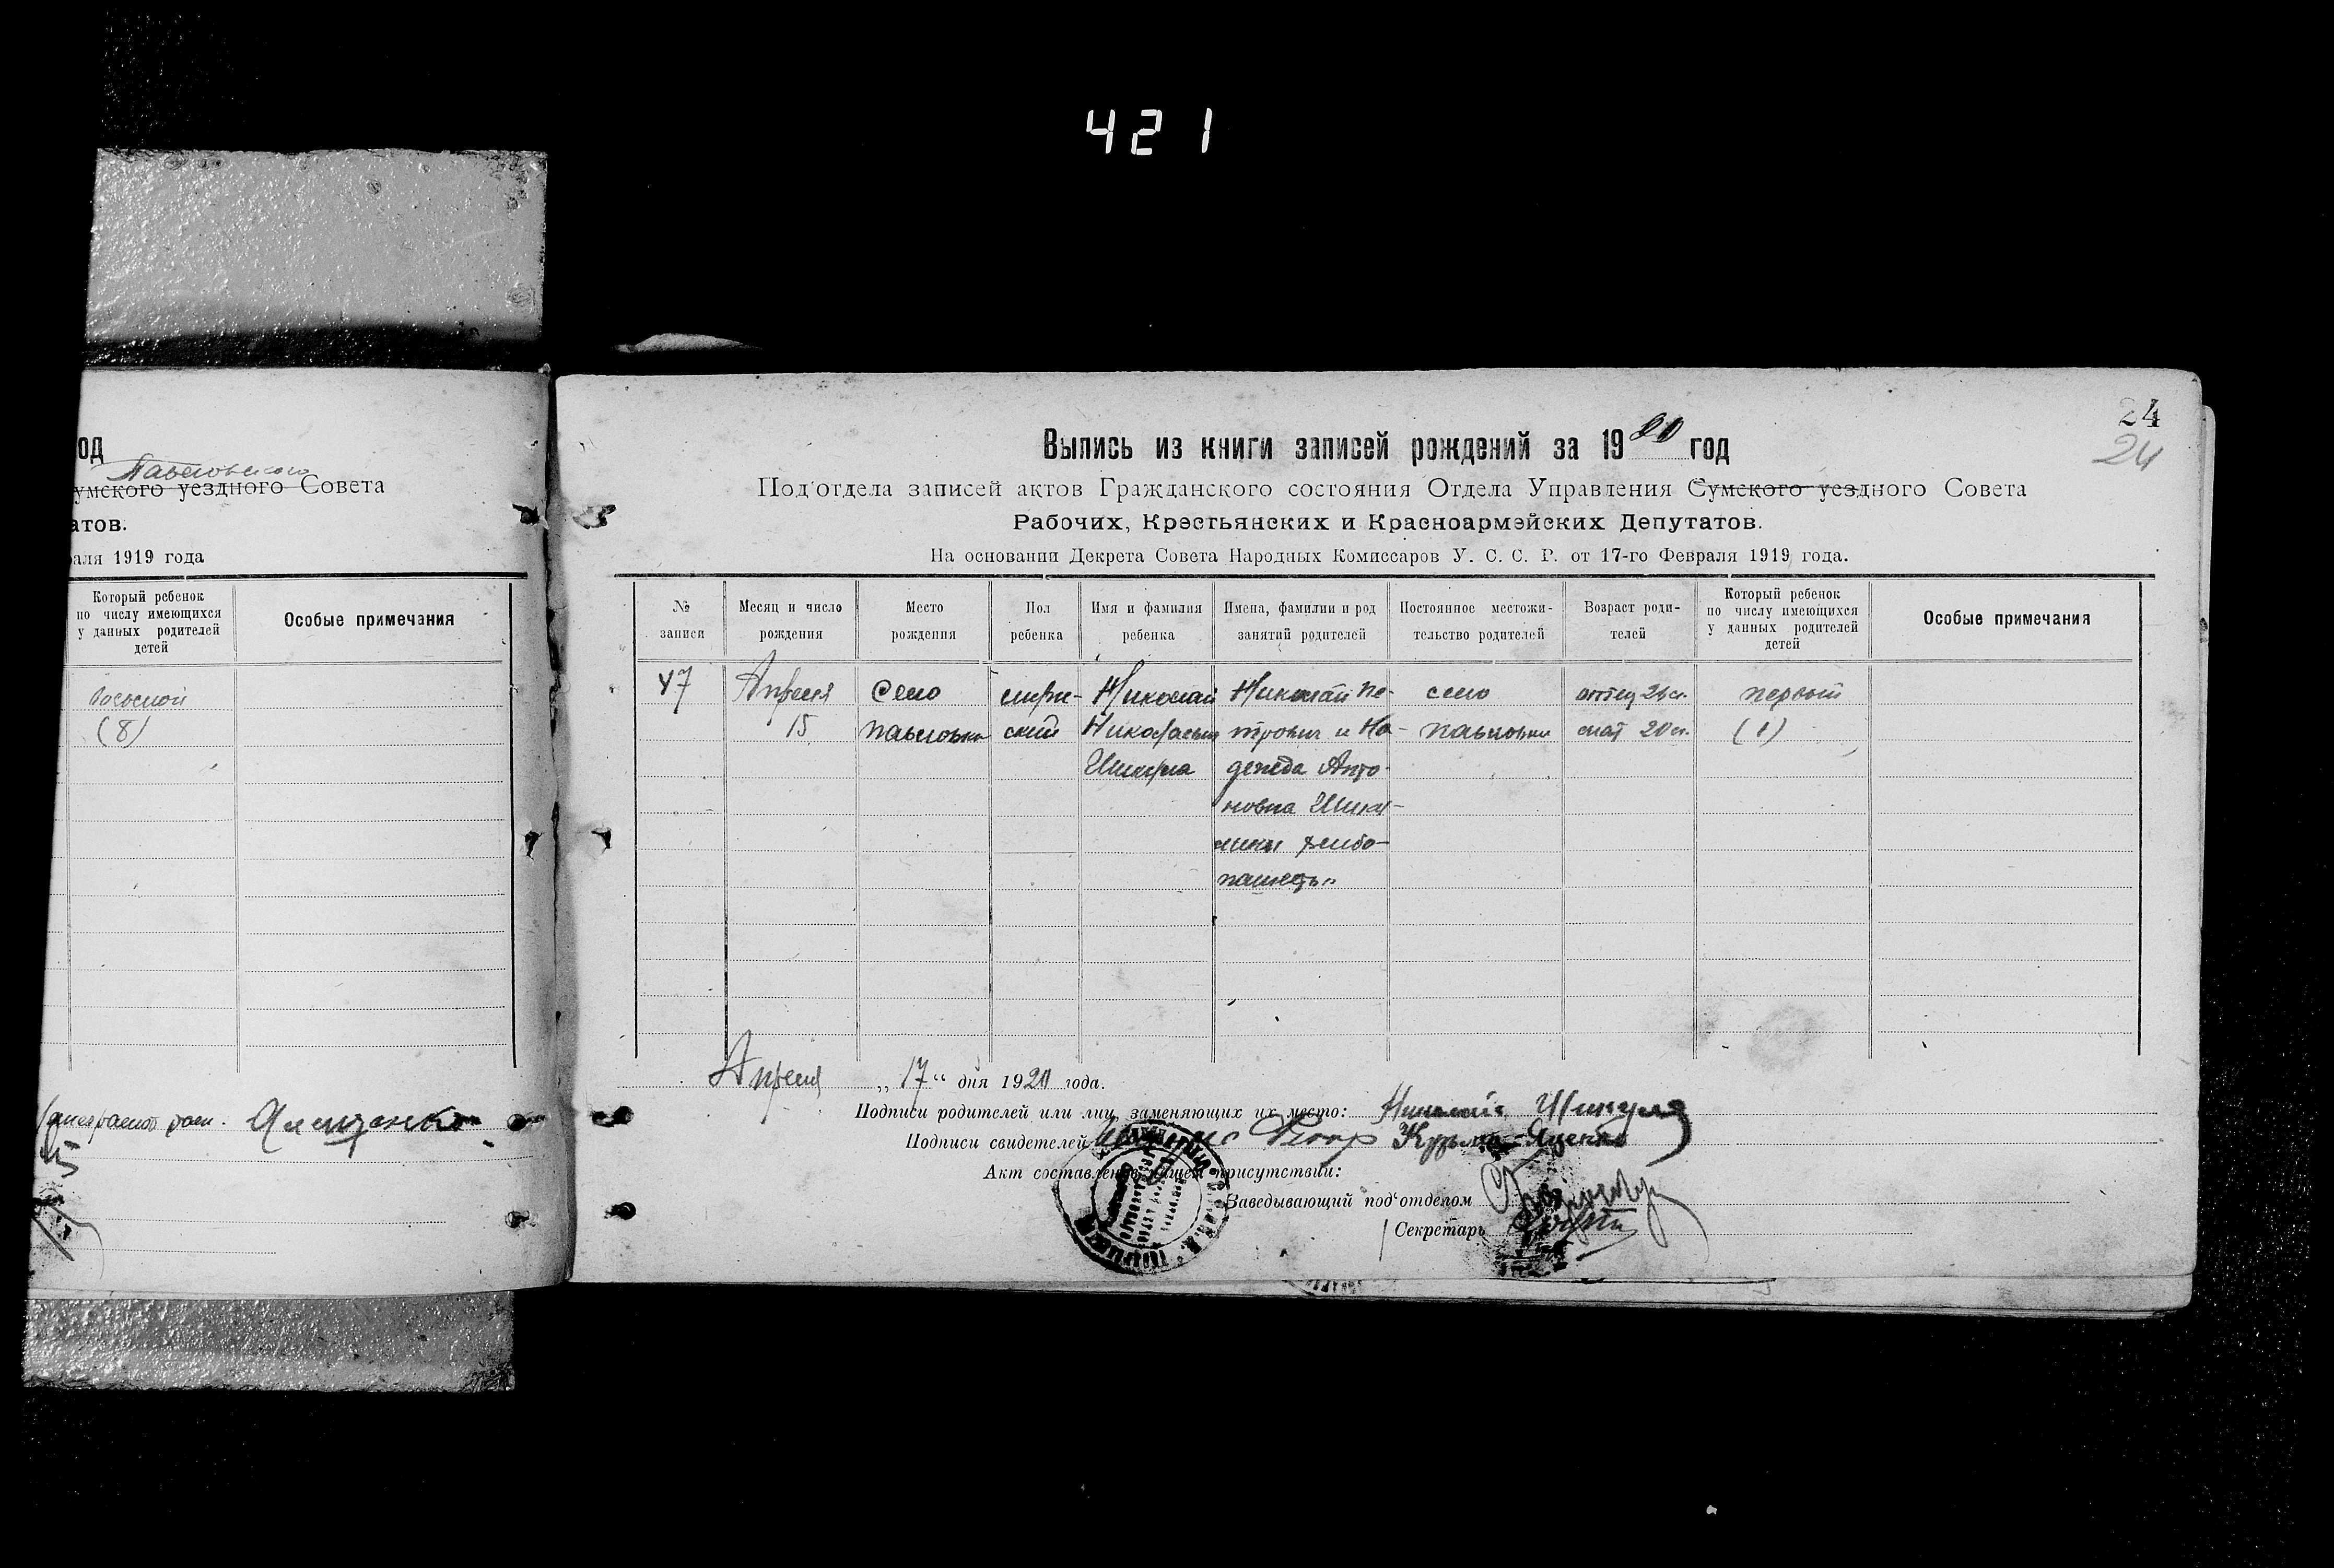 421
од
Павловского
умского уездного Совета
атов.
аля 1919 года
Который ребенок
по числу имеющихся
у данных родителей
детей
Особые примечания
(8)
24
24
Выпись из книги записей рождений за 1920 год
Под'отдела записей актов Гражданского состояния Отдела Управления Сумского уездного Совета
Рабочих, Крестьянских и Красноармейских Депутатов.
На основании Декрета Совета Народных Комиссаров У. С. С. Р. от 17-го Февраля 1919 года.
№
записи
Месяц и число
рождения
Место
рождения
Пол
ребенка
Имя и фамилия
ребенка
Имена, фамилии и род
занятий родителей
Постоянное местожи-
тельство родителей
Возраст роди-
телей
Который ребенок
по числу имеющихся
у данных родителей
детей
Особые примечания
47
Апреля
15
Село
Павловка
мужс-
ский
Николай
Николаевич
Шикула
Николай Пе-
трович и На-
дежда Анто-
новна Шику-
лины хлебо-
пашецъ
село
Павловка
отец 26 л.
мат 20 л.
первый
(1)
Апреля „17“ дня 1920 года.
Подписи родителей или лиц, заменяющих их место: Николай Шикула
Подписи свидетелей Кузьма Яценко
Акт составлен в нашем присутствии:
Заведывающий под'отделом
Секретарь